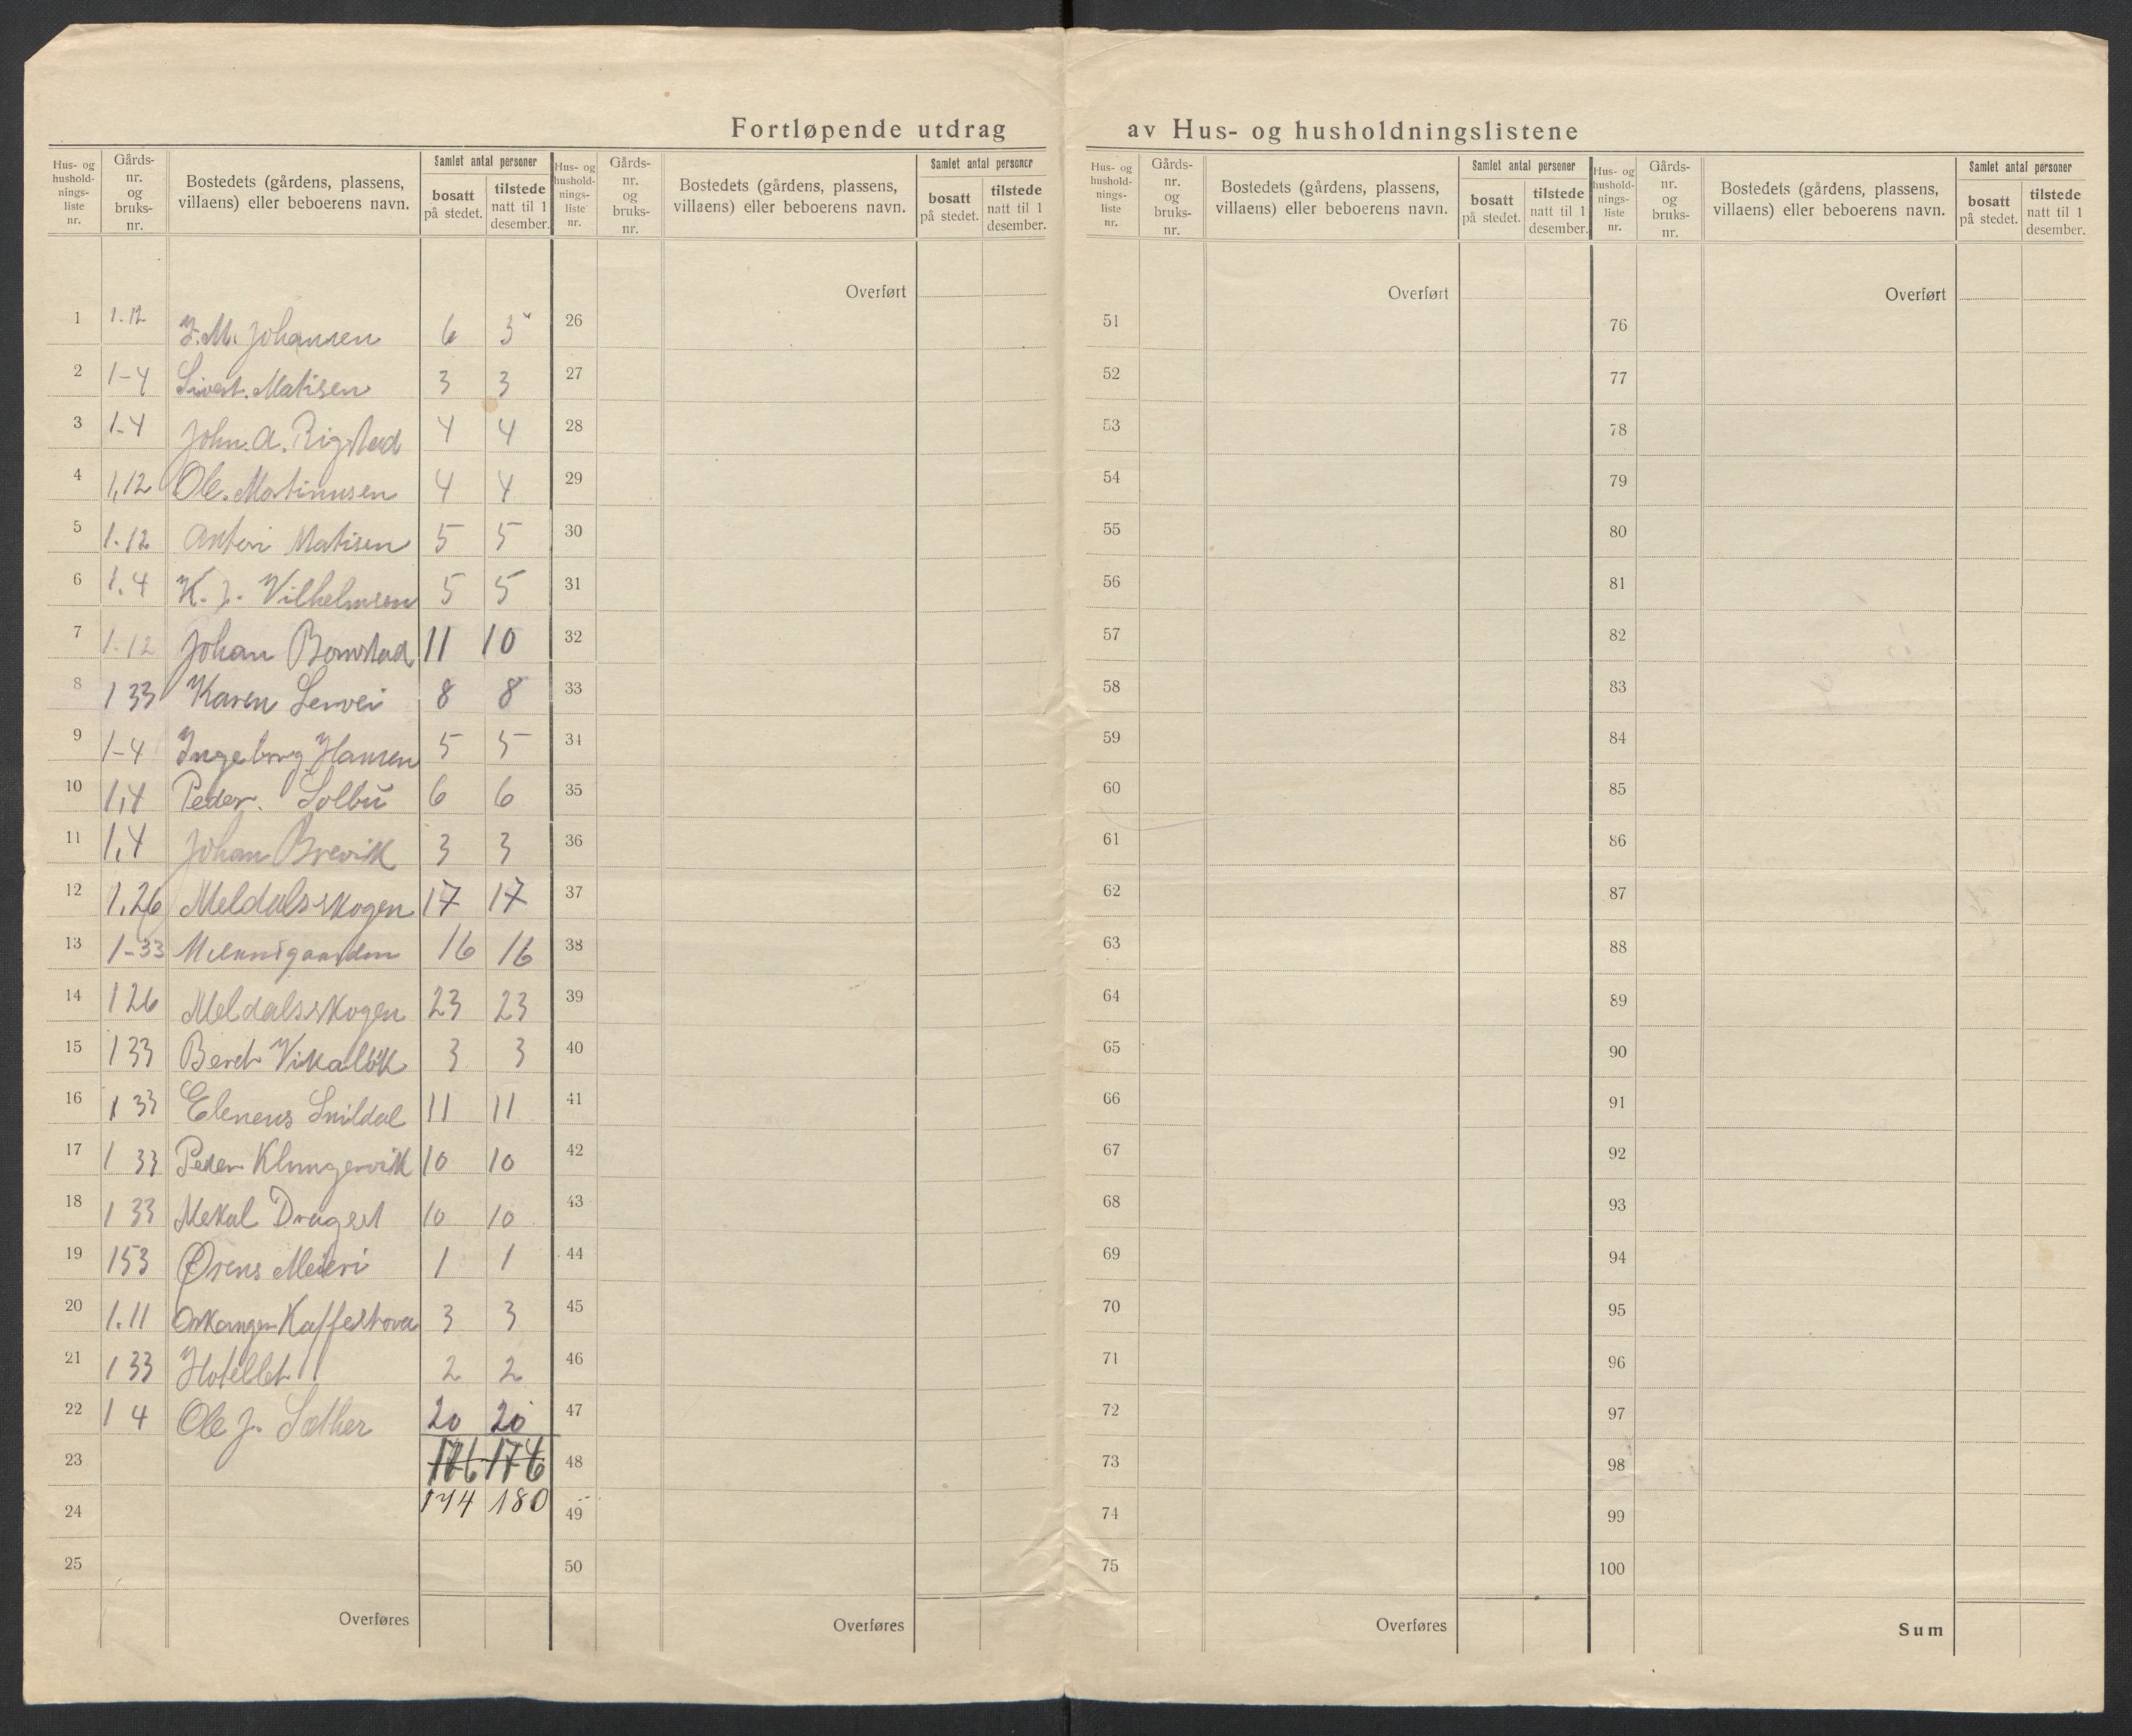 Fortløpende utdrag av Hus- og husholdningslistene
Hus- og husholdningsliste nr. Gårds-nr. og bruks-nr. Bostedets (gårdens, plassens, villaens) eller beboerens navn. Samlet antal personer bosatt på stedet. tilstede natt til 1 desember.
Hus- og husholdningsliste nr. Gårds-nr. og bruks-nr. Bostedets (gårdens, plassens, villaens) eller beboerens navn. Samlet antal personer bosatt på stedet. tilstede natt til 1 desember.
Hus- og husholdningsliste nr. Gårds-nr. og bruks-nr. Bostedets (gårdens, plassens, villaens) eller beboerens navn. Samlet antal personer bosatt på stedet. tilstede natt til 1 desember.
Hus- og husholdningsliste nr. Gårds-nr. og bruks-nr. Bostedets (gårdens, plassens, villaens) eller beboerens navn. Samlet antal personer bosatt på stedet. tilstede natt til 1 desember.
Overført Overført Overført
1 1.12 J. M. Johansen 6 3 26 51 76
2 1-4 Sivert. Matisen 3 3 27 52 77
3 1-4 John. A. Rigstad 4 4 28 53 78
4 1,12 Ole. Martinusen 4 4 29 54 79
5 1.12 Matisen 5 5 30 55 80
6 1.4 K. J. Vilhelmsen 5 5 31 56 81
7 1.12 Johan Bomstad 11 10 32 57 82
8 1 33 Karen Lervei 8 8 33 58 83
9 1-4 Ingeborg Hansen 5 5 34 59 84
10 1,4 Peder. Solbu 6 6 35 60 85
11 1,4 Johan Brevik 3 3 36 61 86
12 1.26 Meldalsskogen 17 17 37 62 87
13 1-33 16 16 38 63 88
14 1 26 Meldalsskogen 23 23 39 64 89
15 1 33 Beret 3 3 40 65 90
16 1 33 Elenens Snildal 11 11 41 66 91
17 1 33 Peder Klungervik 10 10 42 67 92
18 1 33 Mekal Dragset 10 10 43 68 93
19 153 Ørens Meieri 1 1 44 69 94
20 1.11 Orkanger Kaffestova 3 3 45 70 95
21 1 33 Hotellet 2 2 46 71 96
22 1 4 Ole J. Sæther 20 20 47 72 97
23 176 176 48 73 98
24 174 180 49 74 99
25 50 75 100
Overføres Overføres Overføres Sum